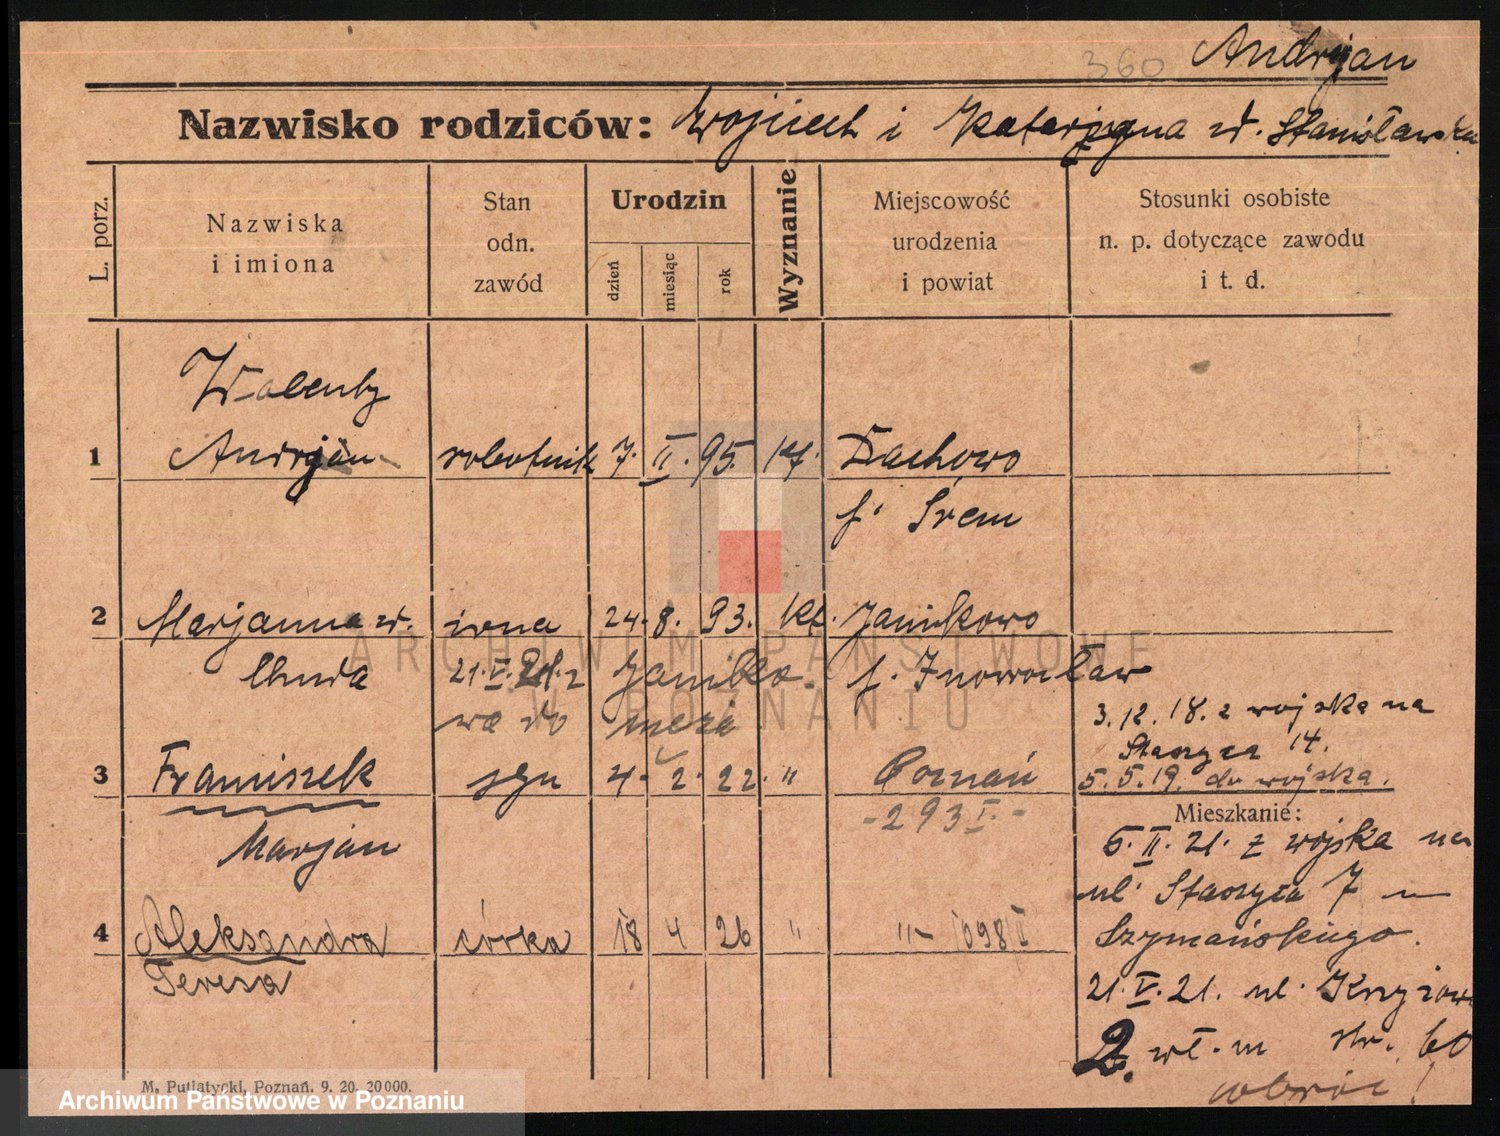 360 Andrjan
Nazwisko rodziców: Wojciech i Katarzyna zd. Stanisławska
L. porz.
Nazwiska
i imiona
Stan
odn.
zawód
Urodzin
dzień
miesiąc
rok
Wyznanie
Miejscowość
urodzenia
i powiat
Stosunki osobiste
n. p. dotyczące zawodu
i t. d.
Walenty
1 Andrjan robotnik 7. II. 95. kt. Dachowo
p. Śrem
2 Marjanna zd. żona 24. 8. 93. kt. Janikowo
Chuda 21. V. 21. z Janiko- p. Inowrocław
wa do męża
3. 12. 18. z wojska na
Staszyca 14.
3 Franciszek syn 4. 2. 22 " Poznań 5. 5. 19. do wojska.
- 293 I. -
Marjan
Mieszkanie:
5. II. 21. z wojska na
ul. Staszyca 7
4 Aleksandra córka 18 4 26 " " - 1098 II Szymańskiego.
Teresa
21. V. 21. ul. Krzyżowa
2. wł. m str. 60
obróć!
M. Putiatycki, Poznań. 9. 20. 20000.
Archiwum Państwowe w Poznaniu
ARCHIWUM PAŃSTWOWE
W POZNANIU